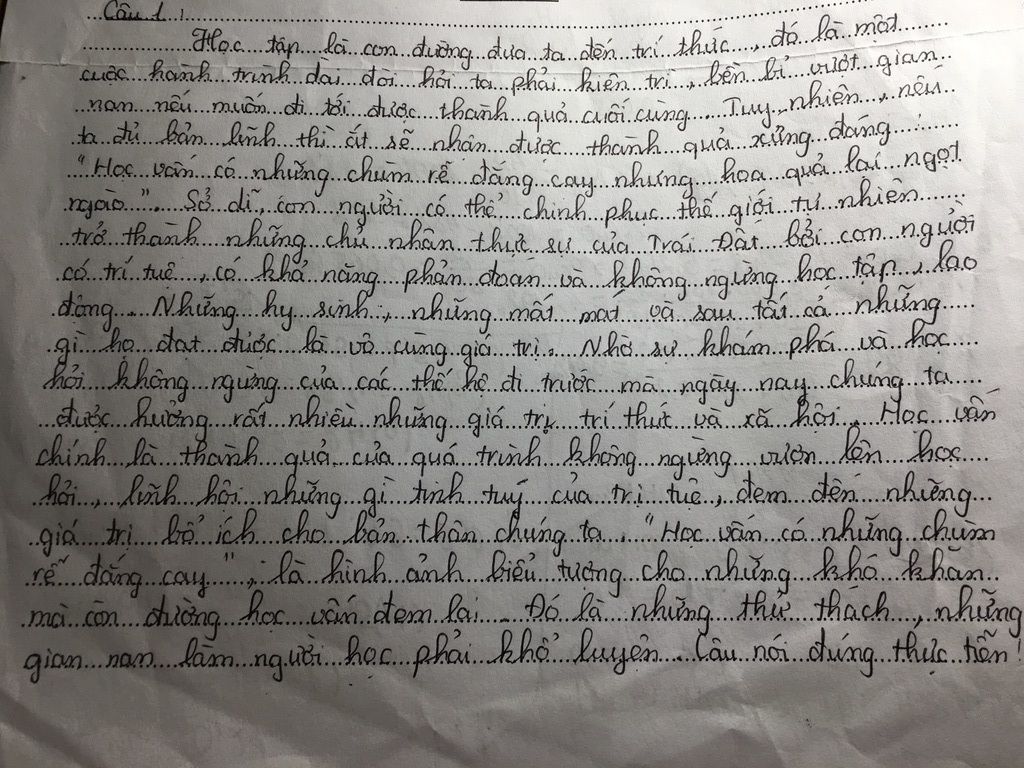 Câu 1:
Học tập là con đường đưa ta đến trí thức, đó là một
cuộc hành trình dài đòi hỏi ta phải kiên trì, bền bỉ vượt gian
nan nếu muốn đi tới được thành quả cuối cùng. Tuy nhiên, nếu
ta đủ bản lĩnh thì ắt sẽ nhận được thành quả xứng đáng:
"Học vấn có những chùm rễ đắng cay nhưng hoa quả lại ngọt
ngào". Sở dĩ, con người có thể chinh phục thế giới tự nhiên
trở thành những chủ nhân thực sự của Trái Đất bởi con người
có trí tuệ, có khả năng phán đoán và không ngừng học tập, lao
động. Những hy sinh, những mất mát và sau tất cả những
gì họ đạt được là vô cùng giá trị. Nhờ sự khám phá và học
hỏi không ngừng của các thế hệ đi trước mà ngày nay chúng ta
được hưởng rất nhiều những giá trị trí thức và xã hội. Học vấn
chính là thành quả của quá trình không ngừng vươn lên học
hỏi, lĩnh hội những gì tinh tuý của trí tuệ, đem đến những
giá trị bổ ích cho bản thân chúng ta. "Học vấn có những chùm
rễ đắng cay", là hình ảnh biểu tượng cho những khó khăn
mà còn đường học vấn đem lại. Đó là những thử thách, những
gian nan làm người học phải khổ luyện. Câu nói đúng thực tiễn!